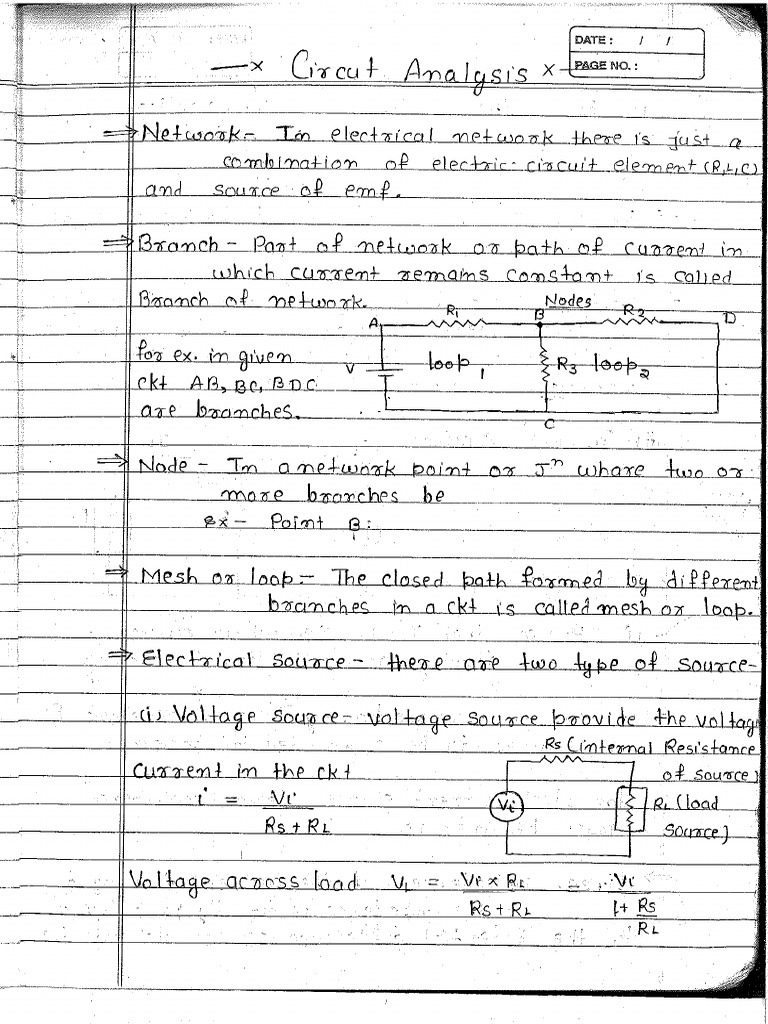 DATE: / /
PAGE NO.:
—x Circut Analysis x—
⇒ Network - In electrical network there is just a
combination of electric circuit element (R,L,C)
and source of emf.
⇒ Branch - Part of network or path of current in
which current remains constant is called
Branch of network.
Nodes
A R1 B R2 D
for ex. in given
V loop1 R3 loop2
ckt AB, BC, BDC
are branches.
C
⇒ Node - In a network point or Jⁿ whare two or
more branches be
ex - Point B.
⇒ Mesh or loop - The closed path formed by different
branches in a ckt is called mesh or loop.
⇒ Electrical source - there are two type of source-
(i) Voltage source - voltage source provide the voltag
Rs (internal Resistance
of source)
current in the ckt
i = Vi / Rs + RL
Vi
RL (load
source)
Voltage across load VL = Vi x RL / Rs + RL = Vi / 1 + Rs / RL